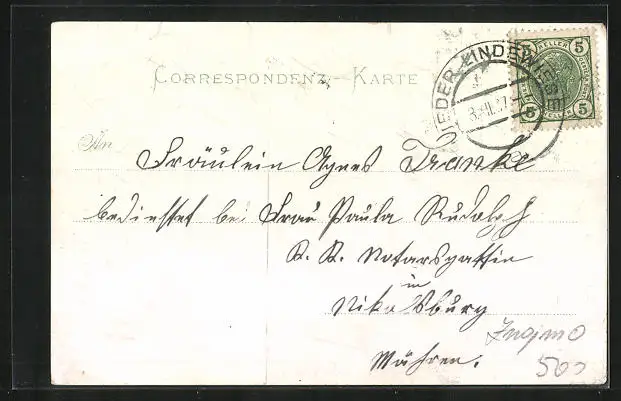 CORRESPONDENZ-KARTE
NIEDER LINDEWIESE
5 HELLER 5
5 5
An
Fräulein Agnes Franke
bedienstet bei Frau Paula Rudolph
K. K. Notarsgattin
in
Nikolsburg
Mähren.
Znojmo